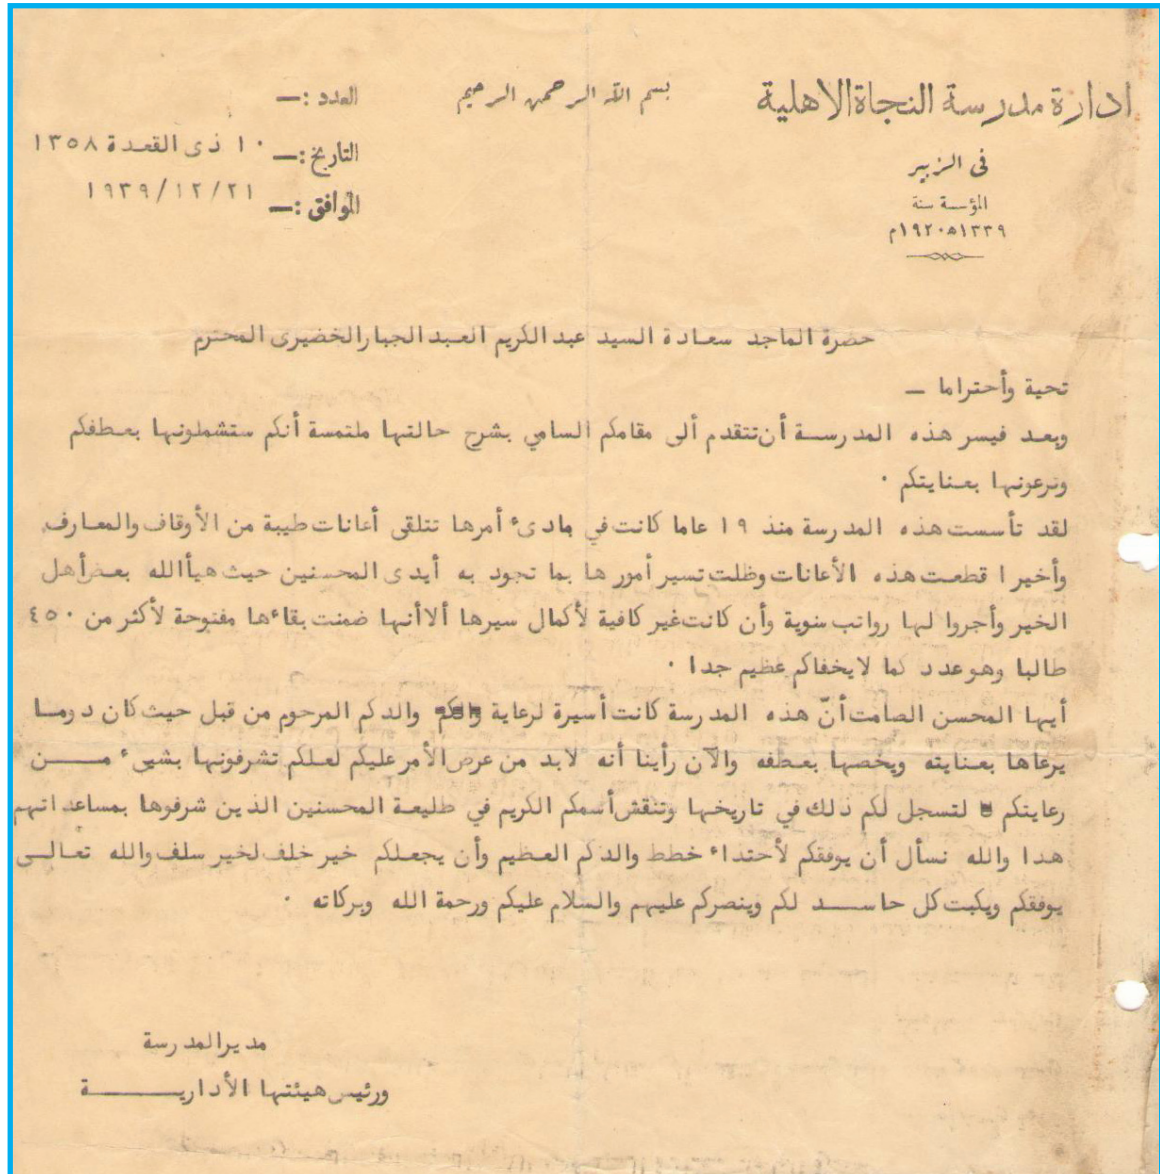 ادارة مدرسة النجاة الاهلية
في الزبير
المؤسسة سنة
١٣٣٩ه١٩٢٠م
بسم الله الرحمن الرحيم
العدد :ـــ
التاريخ :ـــ ١٠ ذى القعدة ١٣٥٨
الموافق :ـــ ١٩٣٩/١٢/٢١
حضرة الماجد سعادة السيد عبد الكريم العبد الجبار الخضيرى المحترم
تحية وأحتراما ــ
وبعد فيسر هذه المدرسة أن تتقدم ألى مقامكم السامي بشرح حالتها ملتمسة أنكم ستشملونها بعطفكم
وترعونها بعنايتكم ٠
لقد تأسست هذه المدرسة منذ ١٩ عاما كانت في بادىء أمرها تتلقى أعانات طيبة من الأوقاف والمعارف
وأخيرا قطعت هذه الأعانات وظلت تسير أمورها بما تجود به أيدى المحسنين حيث هيأ الله بعض أهل
الخير وأجروا لها رواتب سنوية وأن كانت غير كافية لأكمال سيرها ألا أنها ضمنت بقاءها مفتوحة لأكثر من ٤٥٠
طالبا وهو عدد كما لا يخفاكم عظيم جدا ٠
أيها المحسن الصامت أنّ هذه المدرسة كانت أسيرة لرعاية والدكم المرحوم من قبل حيث كان دوما
يرعاها بعنايته ويخصها بعطفه والآن رأينا أنه لابد من عرض الأمر عليكم لعلكم تشرفونها بشيىء مـــن
رعايتكم لتسجل لكم ذلك في تاريخها وتنقش أسمكم الكريم في طليعة المحسنين الذين شرفوها بمساعداتهم
هذا والله نسأل أن يوفقكم لأحتداء خطط والدكم العظيم وأن يجعلكم خير خلف لخير سلف والله تعالـى
يوفقكم ويكبت كل حاســد لكم وينصركم عليهم والسلام عليكم ورحمة الله وبركاته ٠
مدير المدرسة
ورئيس هيئتها الأداريــــة